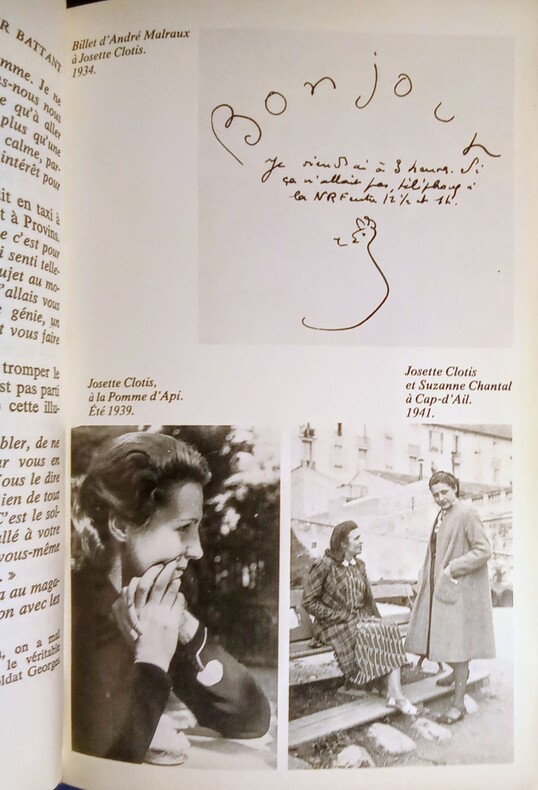 R BATTANT
mme. Je ne
s-nous nous
e qu'à aller
plus qu'une
calme, par-
intérêt pour
it en taxi à
t à Provins.
e c'est pour
i senti telle-
ujet au mo-
'allais vous
génie, un
t vous faire
tromper le
st pas parti
cette illu-
bler, de ne
ur vous en
ous le dire
ien de tout
C'est le sol-
llé à votre
vous-même
. »
a au maga-
on avec les
, on a mal
le véritable
ldat Georges
Billet d'André Malraux
à Josette Clotis.
1934.
Bonjour
Je viendrai à 3 heures. Si
ça n'allait pas, téléphonez à
la NRF entre 12 1/2 et 1h.
Josette Clotis,
à la Pomme d'Api.
Été 1939.
Josette Clotis
et Suzanne Chantal
à Cap-d'Ail.
1941.